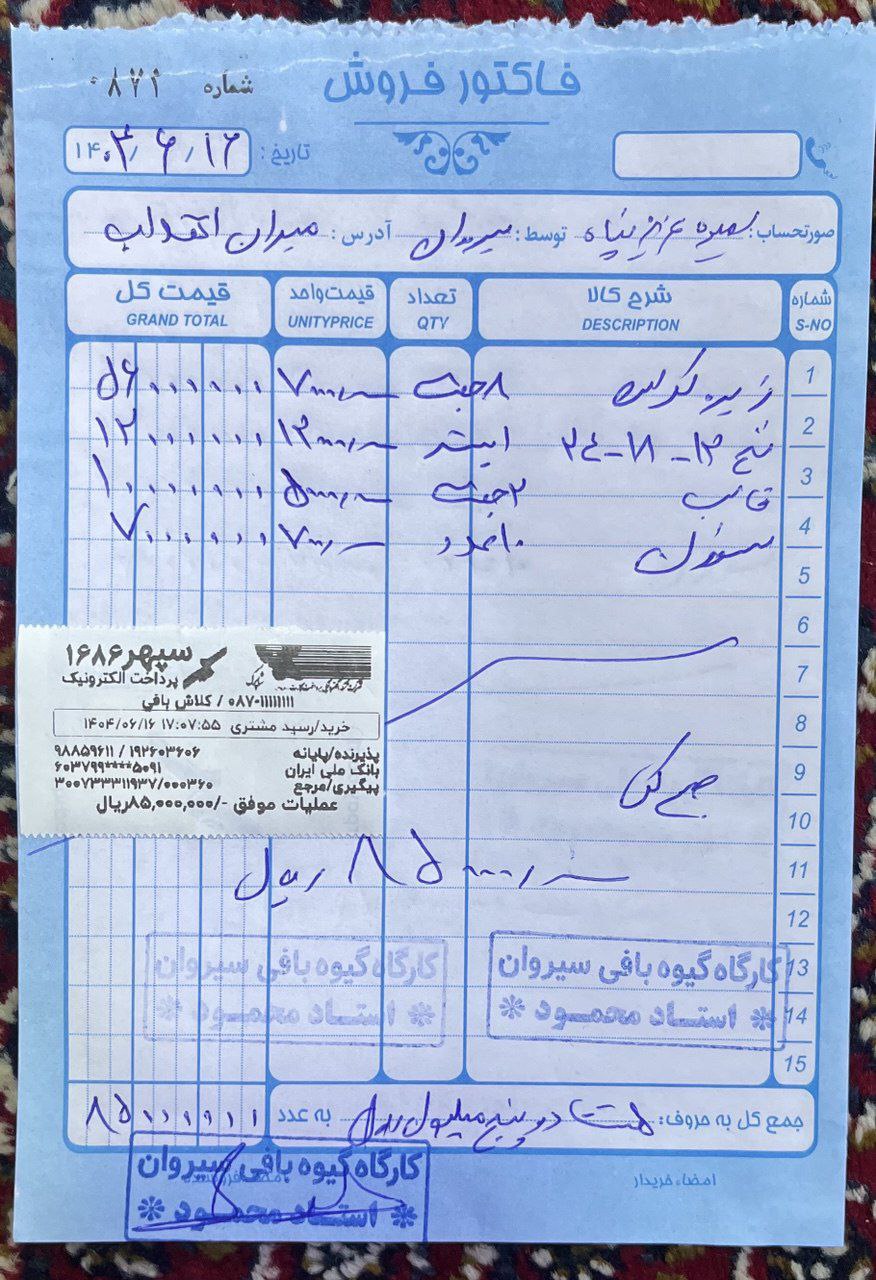 فاکتور فروش
شماره ۰۸۷۱
تاریخ: ۱۴۰۴/۶/۱۶
صورتحساب: سمیره عزیزپناه توسط: سیروان آدرس: میدان انقلاب
شماره شرح کالا تعداد قیمت واحد قیمت کل
S-NO DESCRIPTION QTY UNITYPRICE GRAND TOTAL
1 زیره ۸ جفت ۷۰۰۰/۰۰۰ ۵۶۰۰۰۰۰۰
2 نخ ۱۲-۱۸-۲۴ ۱۲۰۰۰/۰۰۰ ۱۲۰۰۰۰۰۰
3 قالب ۲ جفت ۵۰۰۰/۰۰۰ ۱۰۰۰۰۰۰۰
4 سوزن ۱۰ عدد ۷۰۰/۰۰۰ ۷۰۰۰۰۰۰
5
6
7
8
9 جمع کل
10
11 ۸۵۰۰۰/۰۰۰ ریال
12
13
14
15
سپهر ۱۶۸۶
پرداخت الکترونیک
۰۸۷-۱۱۱۱۱۱۱۱ / کلاش بافی
خرید/رسید مشتری ۱۷:۰۷:۵۵ ۱۴۰۴/۰۶/۱۶
پذیرنده/پایانه ۹۸۸۵۹۶۱۱ / ۱۹۲۶۰۳۶۰۶
بانک ملی ایران ۶۰۳۷۹۹****۵۰۹۱
پیگیری/مرجع ۳۰۰۷۳۳۳۱۱۹۳۷/۰۰۰۳۶۰
عملیات موفق -/۸۵,۰۰۰,۰۰۰ریال
کارگاه گیوه بافی سیروان
استاد محمود
کارگاه گیوه بافی سیروان
استاد محمود
جمع کل به حروف: هشتاد و پنج میلیون ریال به عدد ۸۵۰۰۰۰۰۰
امضاء خریدار
کارگاه گیوه بافی سیروان
استاد محمود